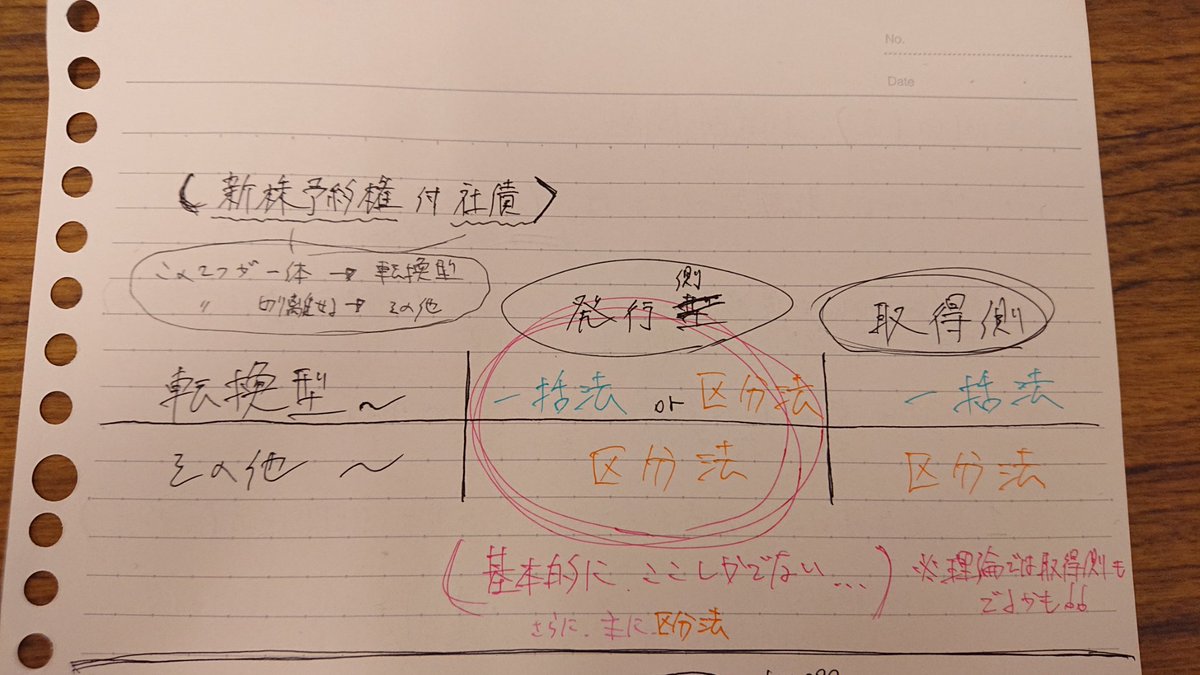 No.
Date
(新株予約権付社債)
この2つが一体→転換型
〃 切り離せる→その他
発行側
取得側
転換型~ 一括法 or 区分法 一括法
その他~ 区分法 区分法
(基本的に、ここしかでない...) ※理論では取得側も
でるかも!!
さらに、主に区分法